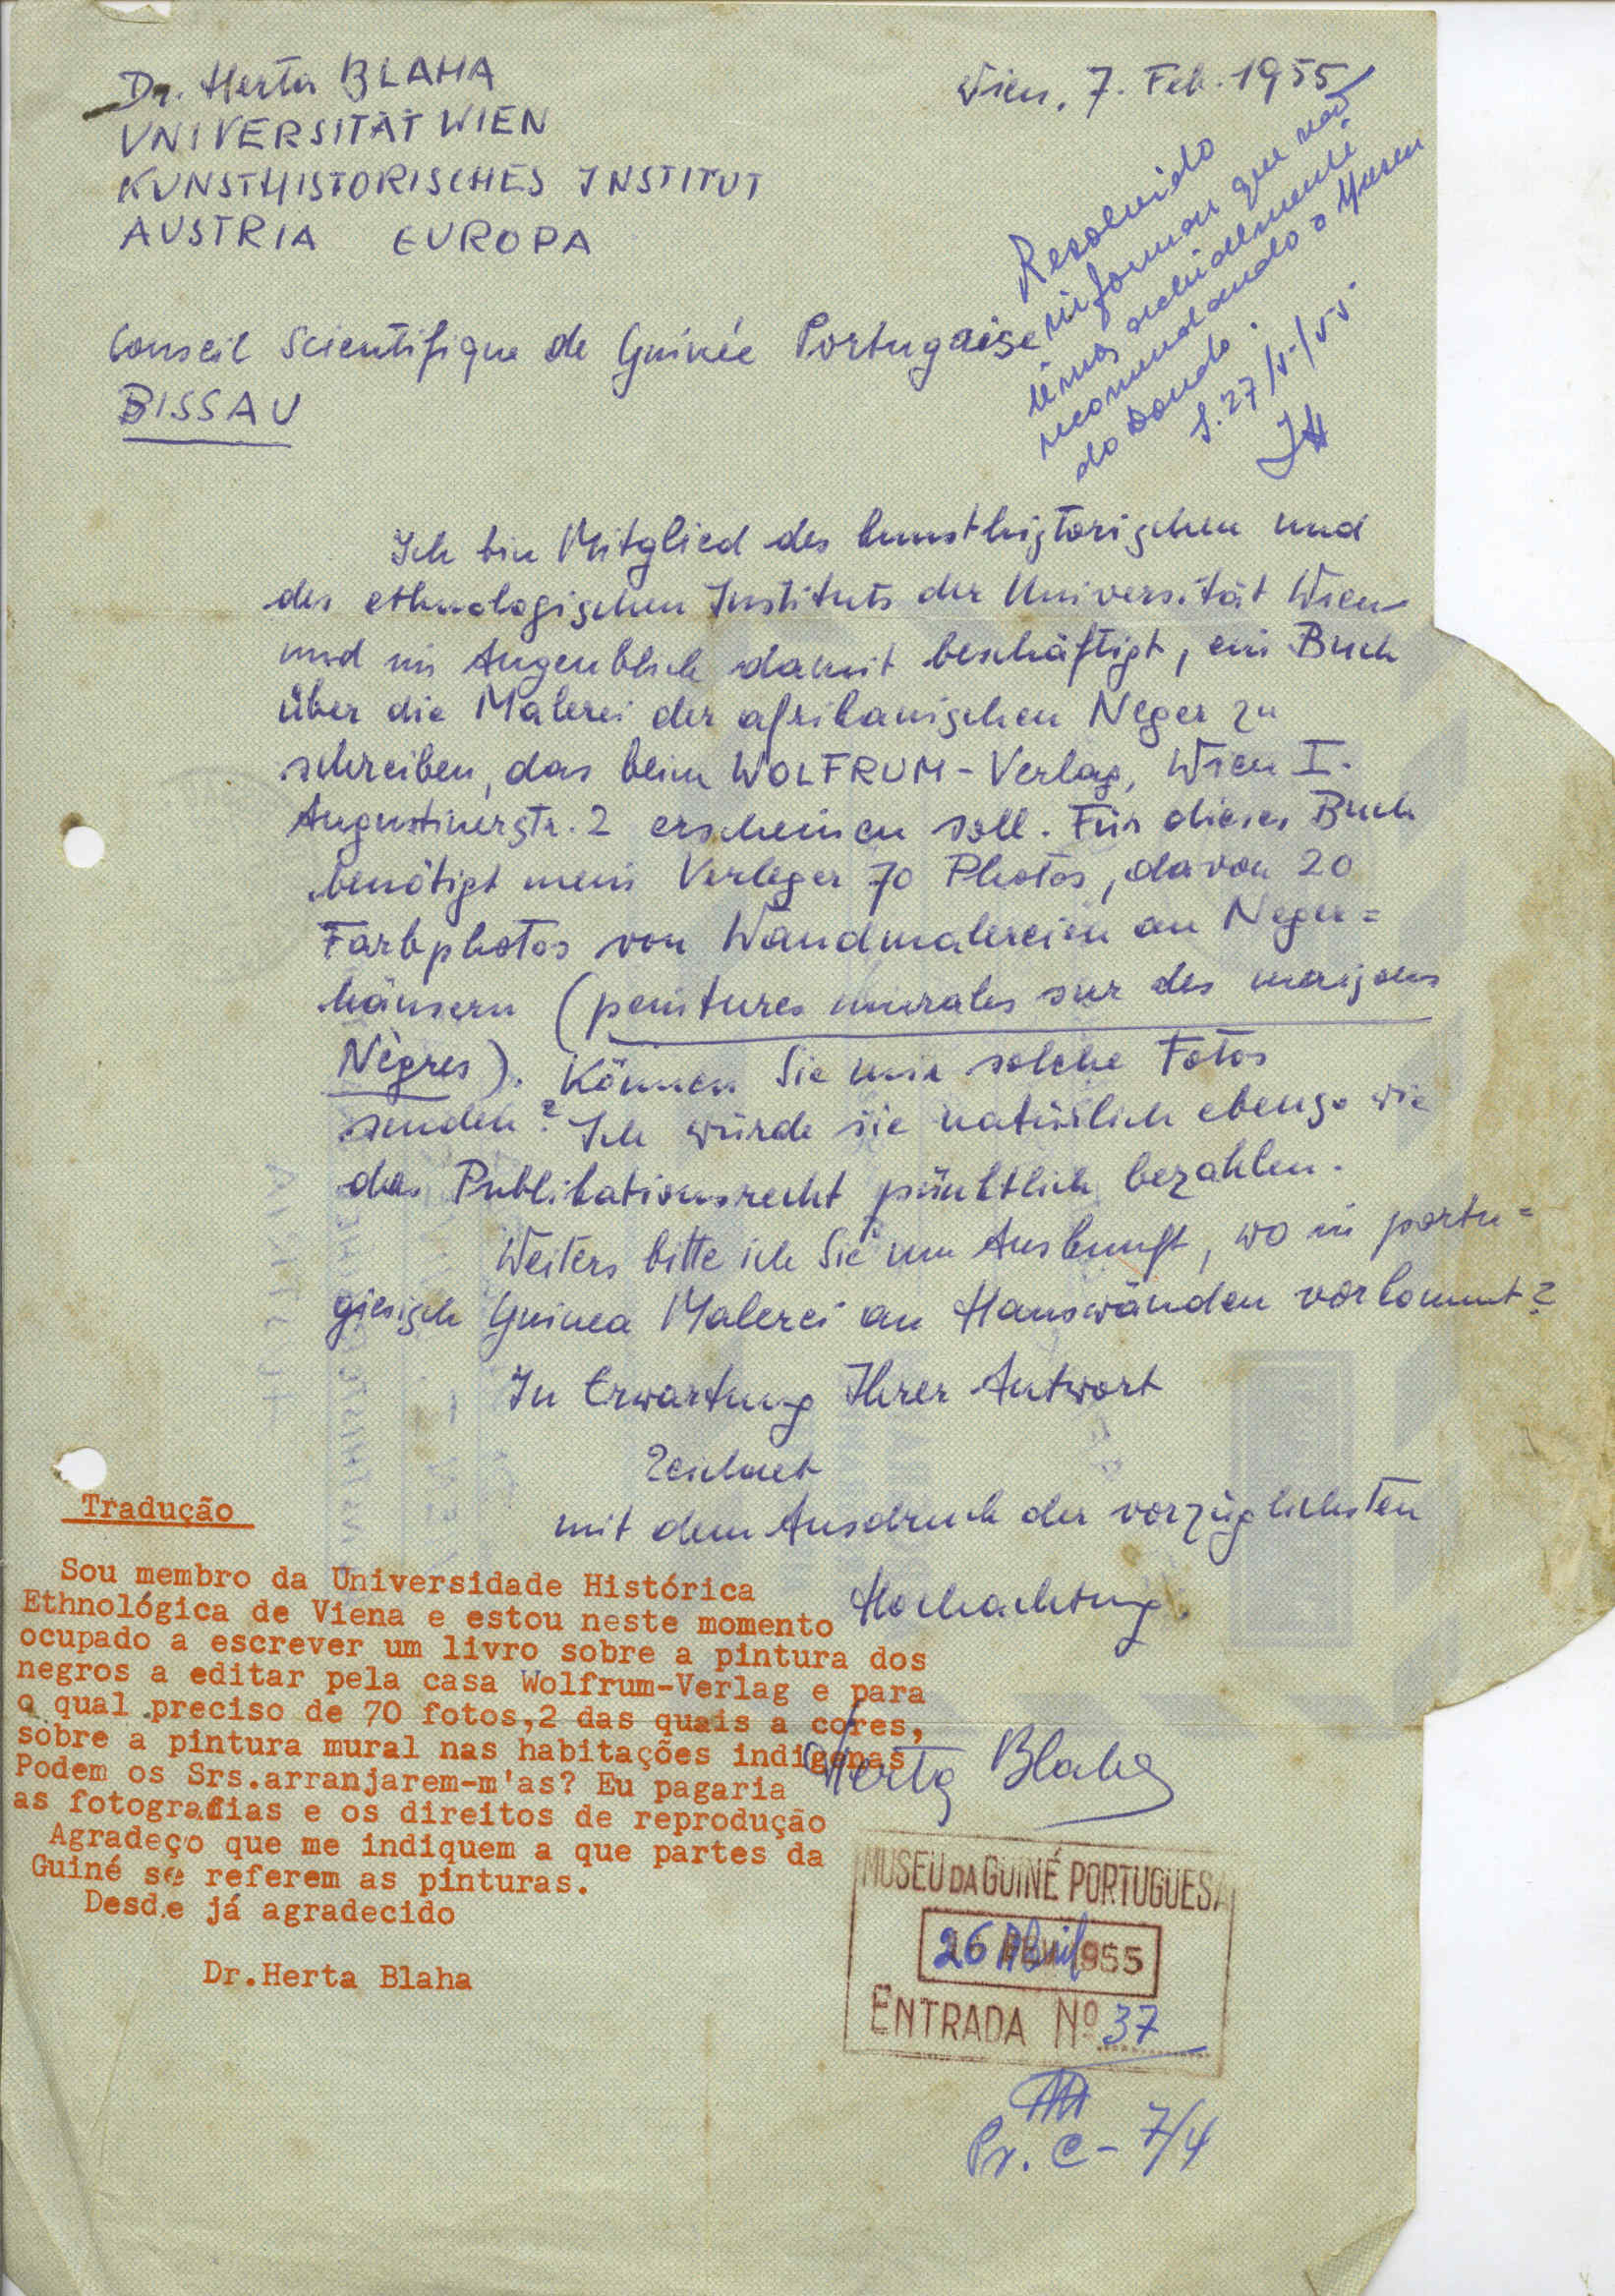 Dr. Herta BLAHA
UNIVERSITÄT WIEN
KUNSTHISTORISCHES INSTITUT
AUSTRIA EUROPA
Wien, 7. Feb. 1955
Resolvido
informar que não
temos
recomendando o Museu
do Dondo.
27/5/55
Conseil Scientifique de Guinée Portugaise
BISSAU
Ich bin Mitglied des kunsthistorischen und
des ethnologischen Instituts der Universität Wien
und im Augenblick damit beschäftigt, ein Buch
über die Malerei der afrikanischen Neger zu
schreiben, das beim WOLFRUM-Verlag, Wien I.
Augustinerstr. 2 erscheinen soll. Für dieses Buch
benötigt mein Verleger 70 Photos, davon 20
Farbphotos von Wandmalereien an Neger=
häusern (peintures murales sur des maisons
Nègres). Können Sie mir solche Fotos
senden? Ich würde sie natürlich ebenso wie
das Publikationsrecht pünktlich bezahlen.
Weiters bitte ich Sie um Auskunft, wo in portu=
giesisch Guinea Malerei an Hauswänden vorkommt?
In Erwartung Ihrer Antwort
zeichnet
mit dem Ausdruck der vorzüglichsten
Hochachtung.
Herta Blaha
Tradução
Sou membro da Universidade Histórica
Ethnológica de Viena e estou neste momento
ocupado a escrever um livro sobre a pintura dos
negros a editar pela casa Wolfrum-Verlag e para
o qual preciso de 70 fotos,2 das quais a cores,
sobre a pintura mural nas habitações indigenas
Podem os Srs.arranjarem-m'as? Eu pagaria
as fotografias e os direitos de reprodução
Agradeço que me indiquem a que partes da
Guiné se referem as pinturas.
Desde já agradecido
Dr.Herta Blaha
MUSEU DA GUINÉ PORTUGUESA
26 Abril 955
ENTRADA Nº 37
Pr. C- 7/4